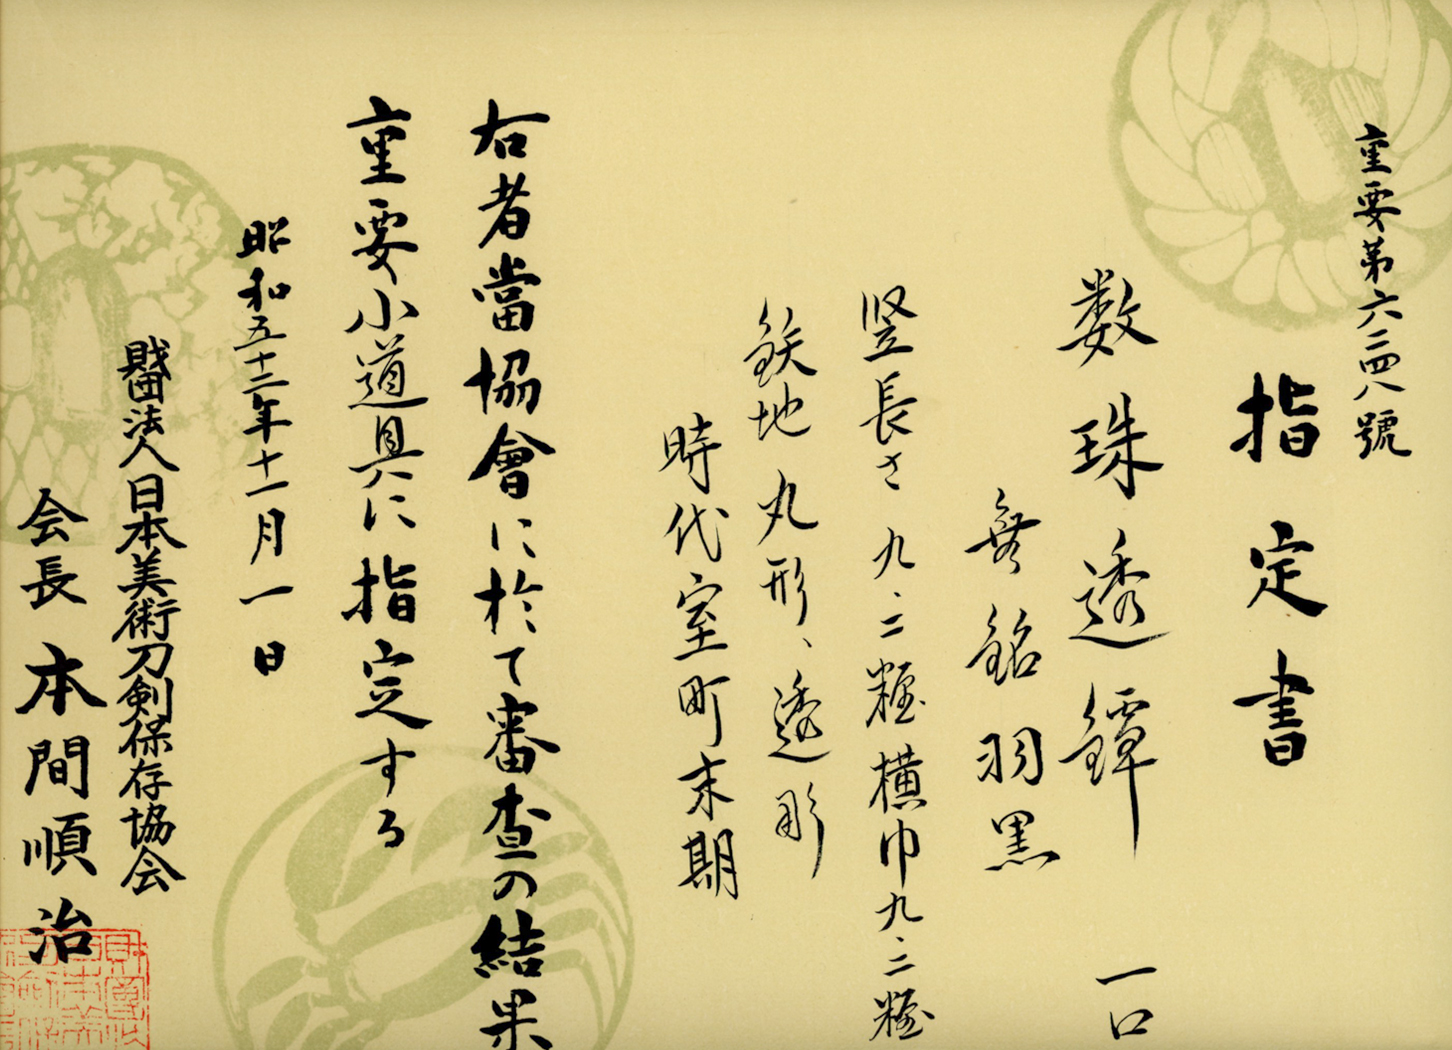 重要第六二四八號
指定書
数珠透鐔 一口
無銘 羽黒
竪長さ九、二糎 横巾九、二糎
鉄地 丸形、透彫
時代室町末期
右者當協會に於て審査の結果
重要小道具に指定する
昭和五十二年十一月一日
財団法人日本美術刀剣保存協会
会長 本間順治